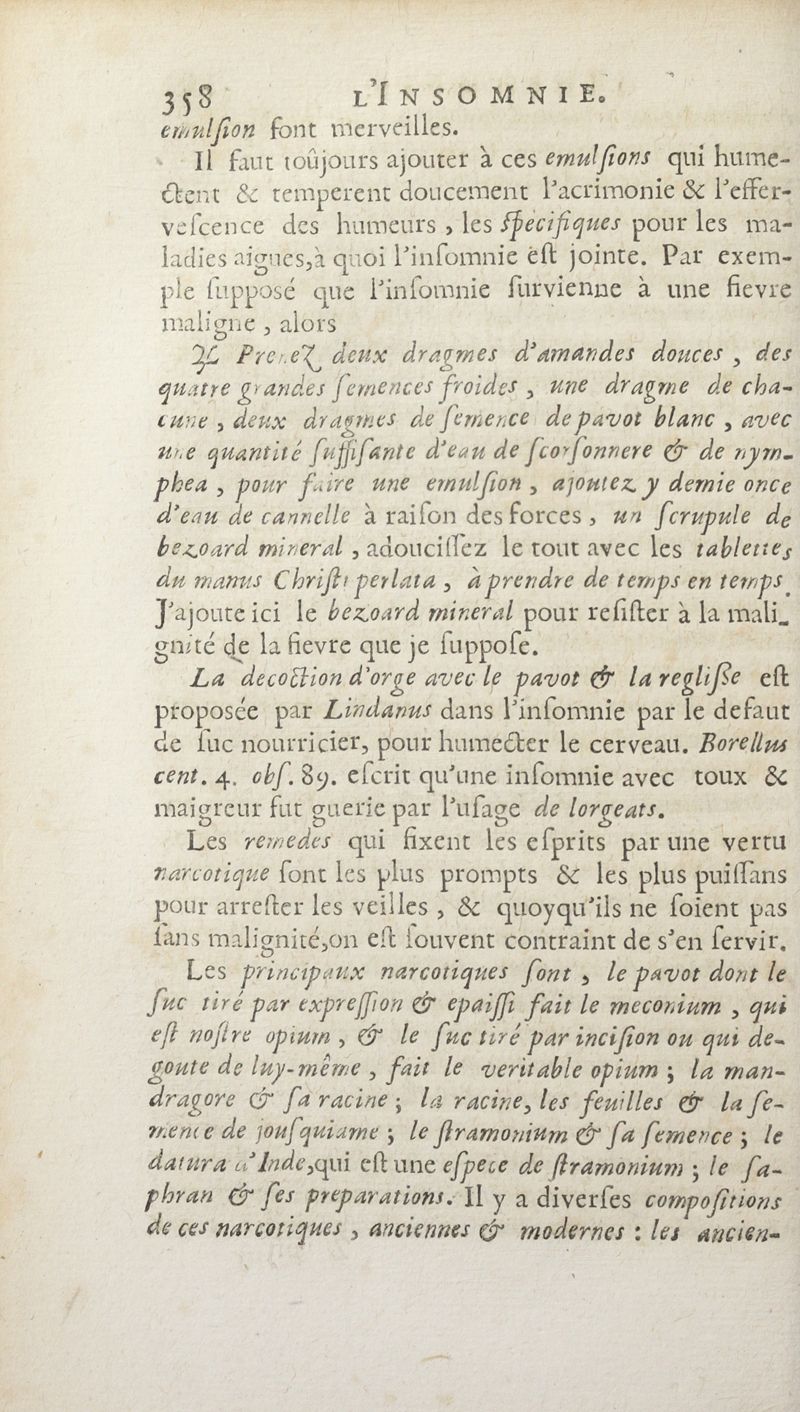 358 L'INSOMNIE.
emulſion font merveilles.
Il faut toûjours ajouter à ces emulſions qui hume-
ctent & temperent doucement l'acrimonie & l'effer-
veſcence des humeurs, les ſpécifiques pour les ma-
ladies aigues,à quoi l'inſomnie eſt jointe. Par exem-
ple ſuppoſé que l'inſomnie ſurvienne à une fievre
maligne, alors
♃ Prenez deux dragmes d'amandes douces, des
quatre grandes ſemences froides, une dragme de cha-
cune, deux dragmes de ſemence de pavot blanc, avec
une quantité ſuffiſante d'eau de ſcorſonnere & de nym-
phea, pour faire une emulſion, ajoutez y demie once
d'eau de cannelle à raiſon des forces, un ſcrupule de
bezoard mineral, adouciſſez le tout avec les tablettes
du manus Chriſti perlata, à prendre de temps en temps.
J'ajoute ici le bezoard mineral pour reſiſter à la mali-
gnité de la fievre que je ſuppoſe.
La decoction d'orge avec le pavot & la regliſſe eſt
propoſée par Lindanus dans l'inſomnie par le defaut
de ſuc nourricier, pour humecter le cerveau. Borellus
cent. 4. obſ. 89. eſcrit qu'une inſomnie avec toux &
maigreur fut guerie par l'uſage de lorgeats.
Les remedes qui fixent les eſprits par une vertu
narcotique ſont les plus prompts & les plus puiſſans
pour arreſter les veilles, & quoyqu'ils ne ſoient pas
ſans malignité,on eſt ſouvent contraint de s'en ſervir.
Les principaux narcotiques ſont, le pavot dont le
ſuc tiré par expreſſion & epaiſſi fait le meconium, qui
eſt noſtre opium, & le ſuc tiré par inciſion ou qui de-
goute de luy-même, fait le veritable opium; la man-
dragore & ſa racine; la racine, les feuilles & la ſe-
mence de jouſquiame; le ſtramonium & ſa ſemence; le
datura d'Inde,qui eſt une eſpece de ſtramonium; le ſa-
phran & ſes preparations. Il y a diverſes compoſitions
de ces narcotiques, anciennes & modernes: les ancien-